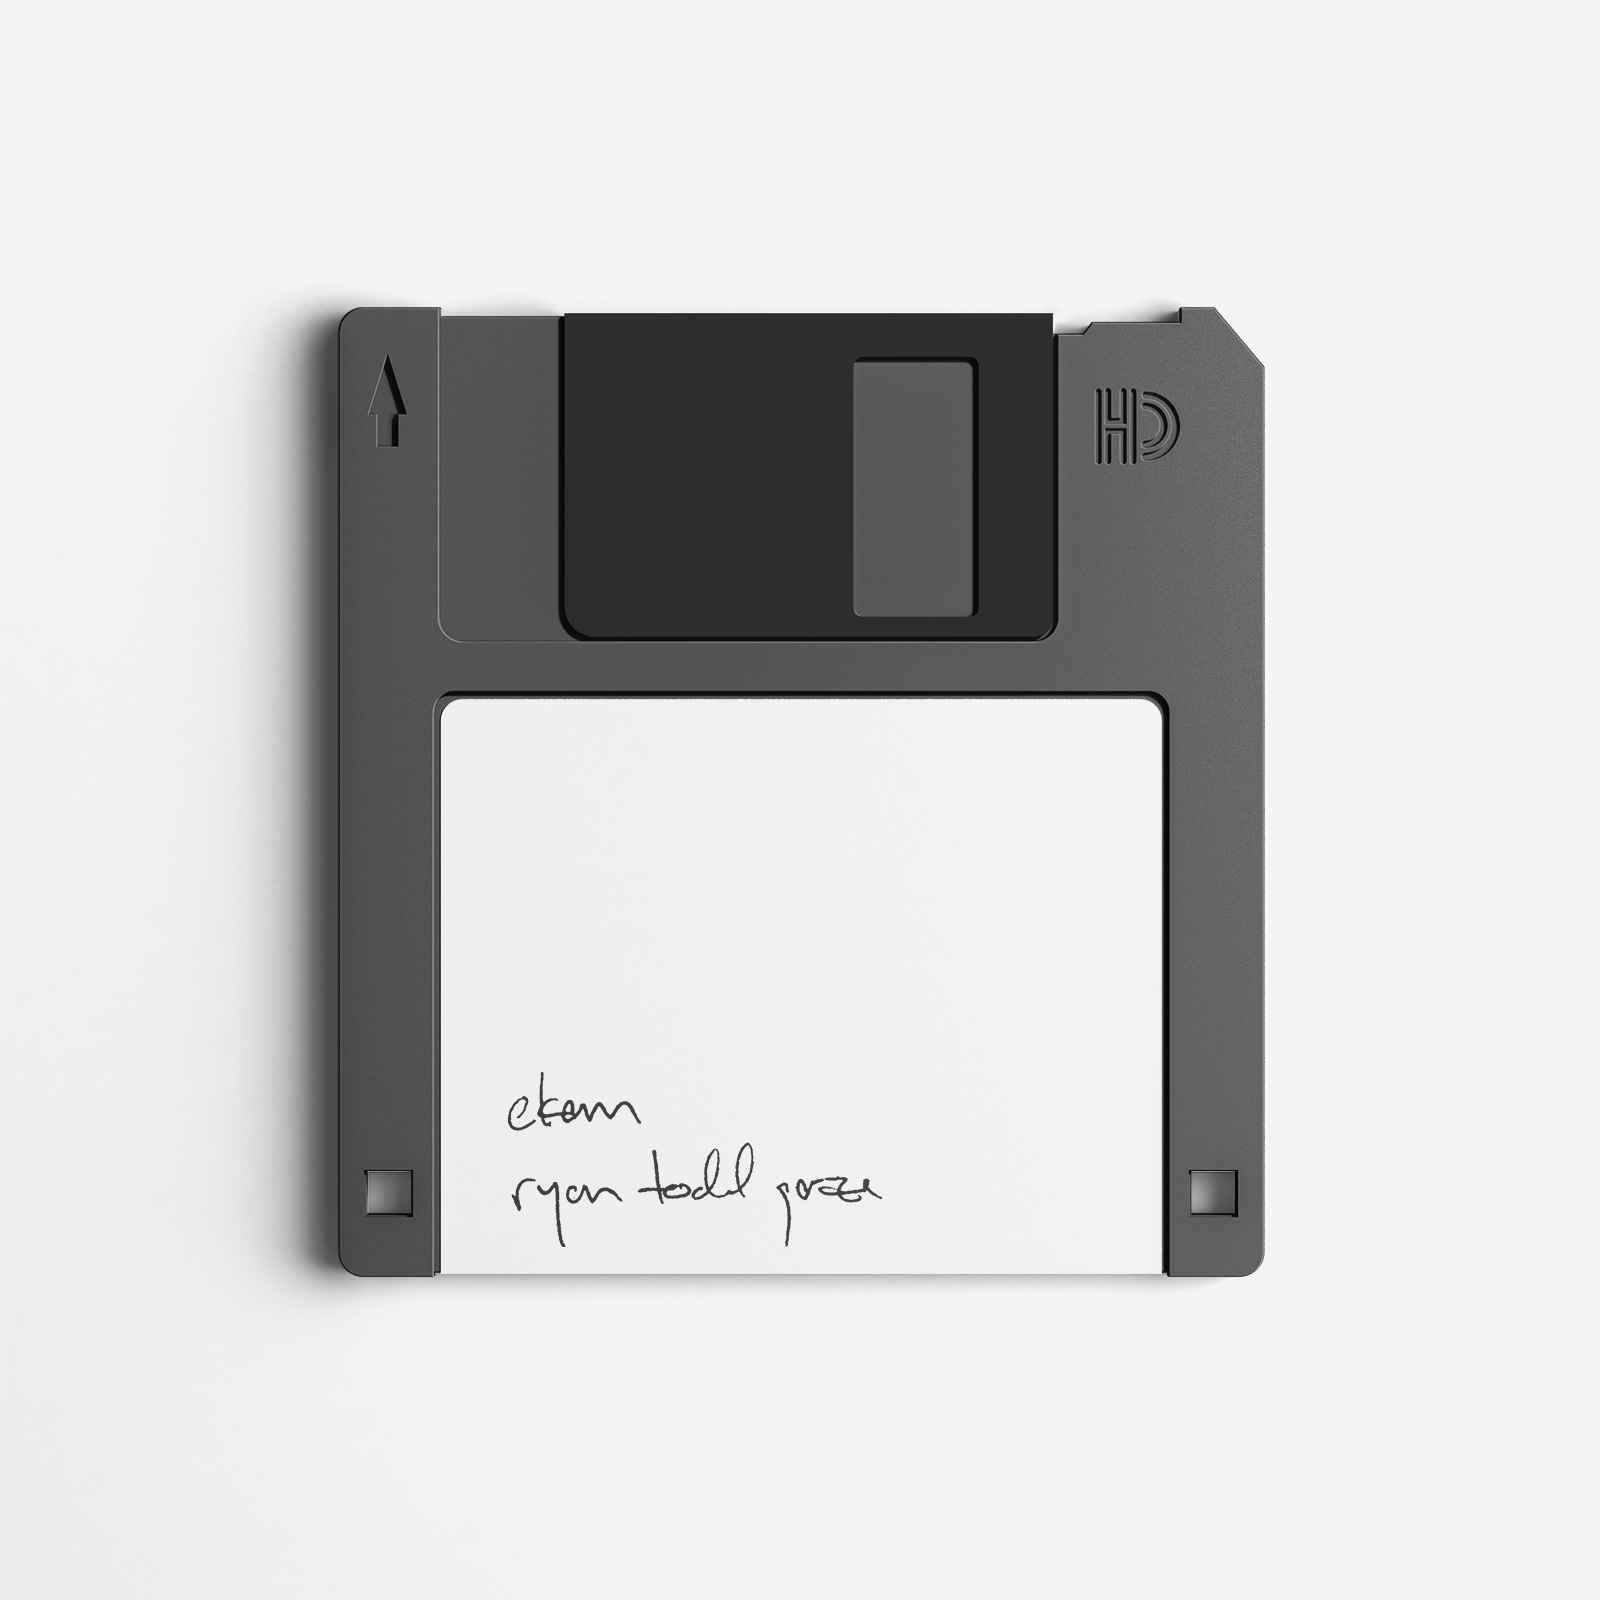 HD
ekam
ryan todd garza